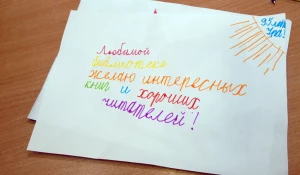 95 лет
Ура!
Любимой
библиотеке
желаю интересных
книг и хороших
читателей!